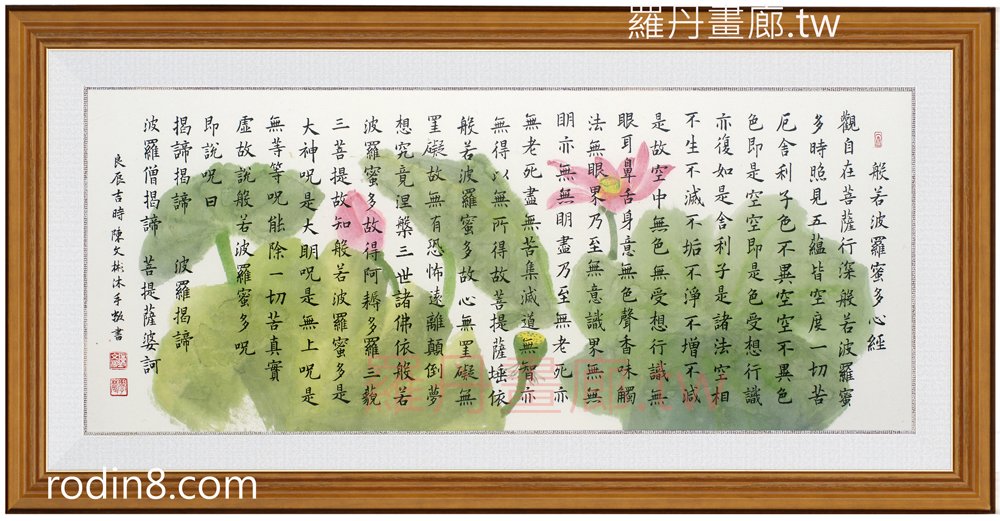 羅丹畫廊.tw
般若波羅蜜多心經
觀自在菩薩行深般若波羅蜜
多時照見五蘊皆空度一切苦
厄舍利子色不異空空不異色
色即是空空即是色受想行識
亦復如是舍利子是諸法空相
不生不滅不垢不淨不增不減
是故空中無色無受想行識無
眼耳鼻舌身意無色聲香味觸
法無眼界乃至無意識界無無
明亦無無明盡乃至無老死亦
無老死盡無苦集滅道無智亦
無得以無所得故菩提薩埵依
般若波羅蜜多故心無罣礙無
罣礙故無有恐怖遠離顛倒夢
想究竟涅槃三世諸佛依般若
波羅蜜多故得阿耨多羅三藐
三菩提故知般若波羅蜜多是
大神呪是大明呪是無上呪是
無等等呪能除一切苦真實
虛故說般若波羅蜜多呪
即說呪曰
揭諦揭諦 波羅揭諦
波羅僧揭諦 菩提薩婆訶
良辰吉時陳文彬沐手敬書
羅丹畫廊.tw
rodin8.com